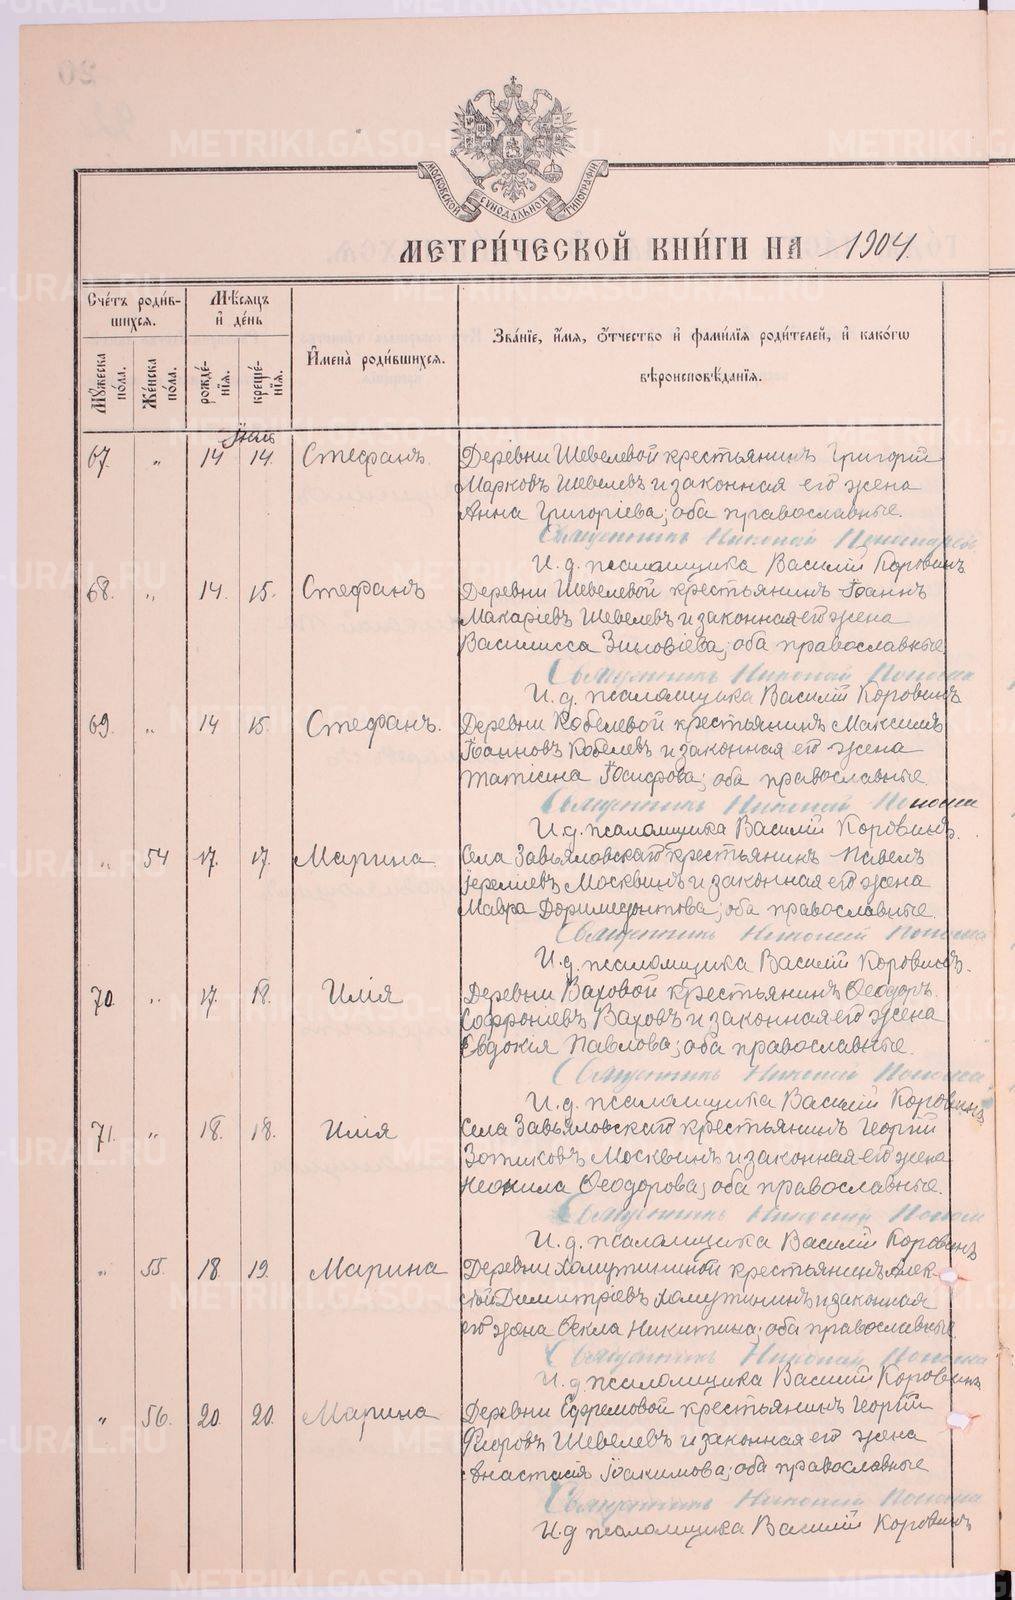 МОСКОВСКОЙ СѴНОДАЛЬНОЙ ТИПОГРАФІИ
МЕТРИ́ЧЕСКОЙ КНИ́ГИ НА 1904.
Сче́тъ роди́в-
шихся.
Мѣ́сяцъ
и́ де́нь
Мꙋ́жеска
по́ла.
Же́нска
по́ла.
рожде́-
нїя.
креще́-
нїя.
И҆мена̀ роди́вшихся.
Зва́нїе, и҆́мя, ѻ҆́тчество и҆ фами́лїя роди́телей, и҆ како́гѡ
вѣроисповѣ́данїя.
Іюль
67. „ 14 14. Стефанъ. Деревни Шевелевой крестьянинъ Григорій
Марковъ Шевелевъ и законная его жена
Анна Григоріева; оба православные.
Священникъ Николай
И. д. псаломщика Василій Коровинъ
68. „ 14. 15. Стефанъ Деревни Шевелевой крестьянинъ Іоаннъ
Макаріевъ Шевелевъ и законная его жена
Василисса Зиновіева; оба православные
Священникъ Николай
И. д. псаломщика Василій Коровинъ
69. „ 14 15. Стефанъ. Деревни Кобелевой крестьянинъ Максимъ
Іоанновъ Кобелевъ и законная его жена
Татіана Іосифова; оба православные.
Священникъ Николай
И. д. псаломщика Василій Коровинъ.
„ 54 17. 17. Марина Села Завьяловскаго крестьянинъ Павелъ
Іереміевъ Москвинъ и законная его жена
Мавра Доримедонтова; оба православные.
Священникъ Николай
И. д. псаломщика Василій Коровинъ.
70. „ 17. 18. Илія Деревни Ваховой крестьянинъ Ѳеодоръ
Софроніевъ Ваховъ и законная его жена
Евдокія Павлова; оба православные.
Священникъ Николай
И. д. псаломщика Василій Коровинъ
71. „ 18. 18. Илія Села Завьяловскаго крестьянинъ Георгій
Зотиковъ Москвинъ и законная его жена
Неонила Ѳеодорова; оба православные.
Священникъ Николай
И. д. псаломщика Василій Коровинъ
„ 55. 18. 19. Марина Деревни Хомутининой крестьянинъ Алек-
сѣй Димитріевъ Хомутининъ и законная
его жена Ѳекла Никитина; оба православные.
Священникъ Николай
И. д. псаломщика Василій Коровинъ
„ 56. 20. 20. Марина Деревни Ефремовой крестьянинъ Георгій
Флоровъ Шевелевъ и законная его жена
Анастасія Іоакимова; оба православные
Священникъ Николай
И. д псаломщика Василій Коровинъ
METRIKI.GASO-URAL.RU